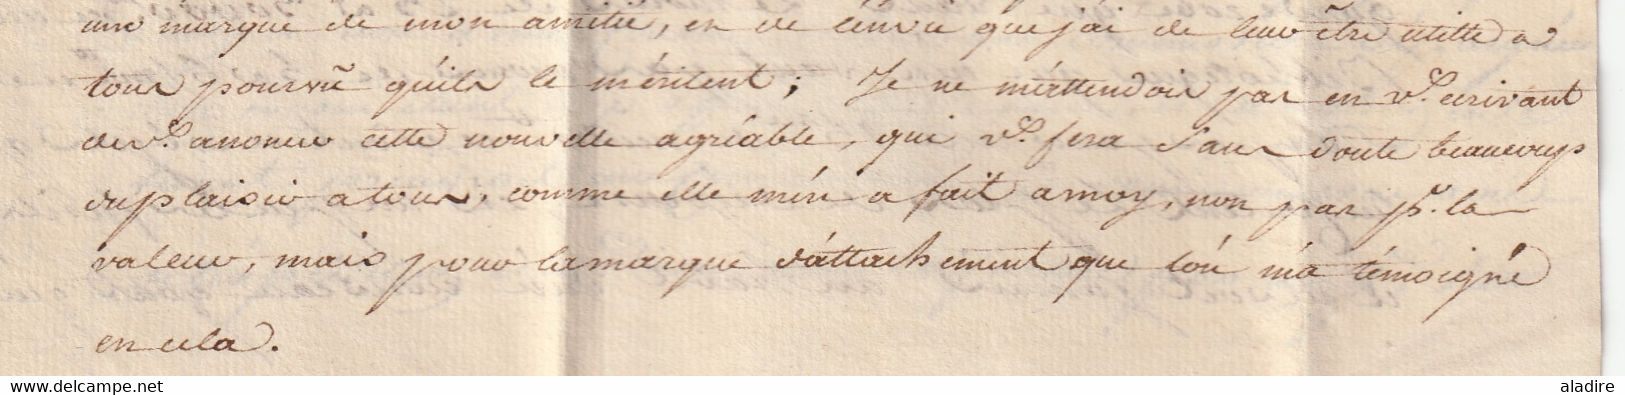 une marque de mon amitié, en de l'énvie que j'ai de leur être utille a
tous pourvû qu'ils le méritent; Je ne m'attendois pas en vs. ecrivant
de vs. anoncer cette nouvelle agréable, qui vs. fera Sans doute beaucoup
du plaisir a tous, comme elle m'en a fait a moy, non pas pr. la
valeur, mais pour la marque d'attachement que l'on m'a témoigné
en cela.
www.delcampe.net
aladire